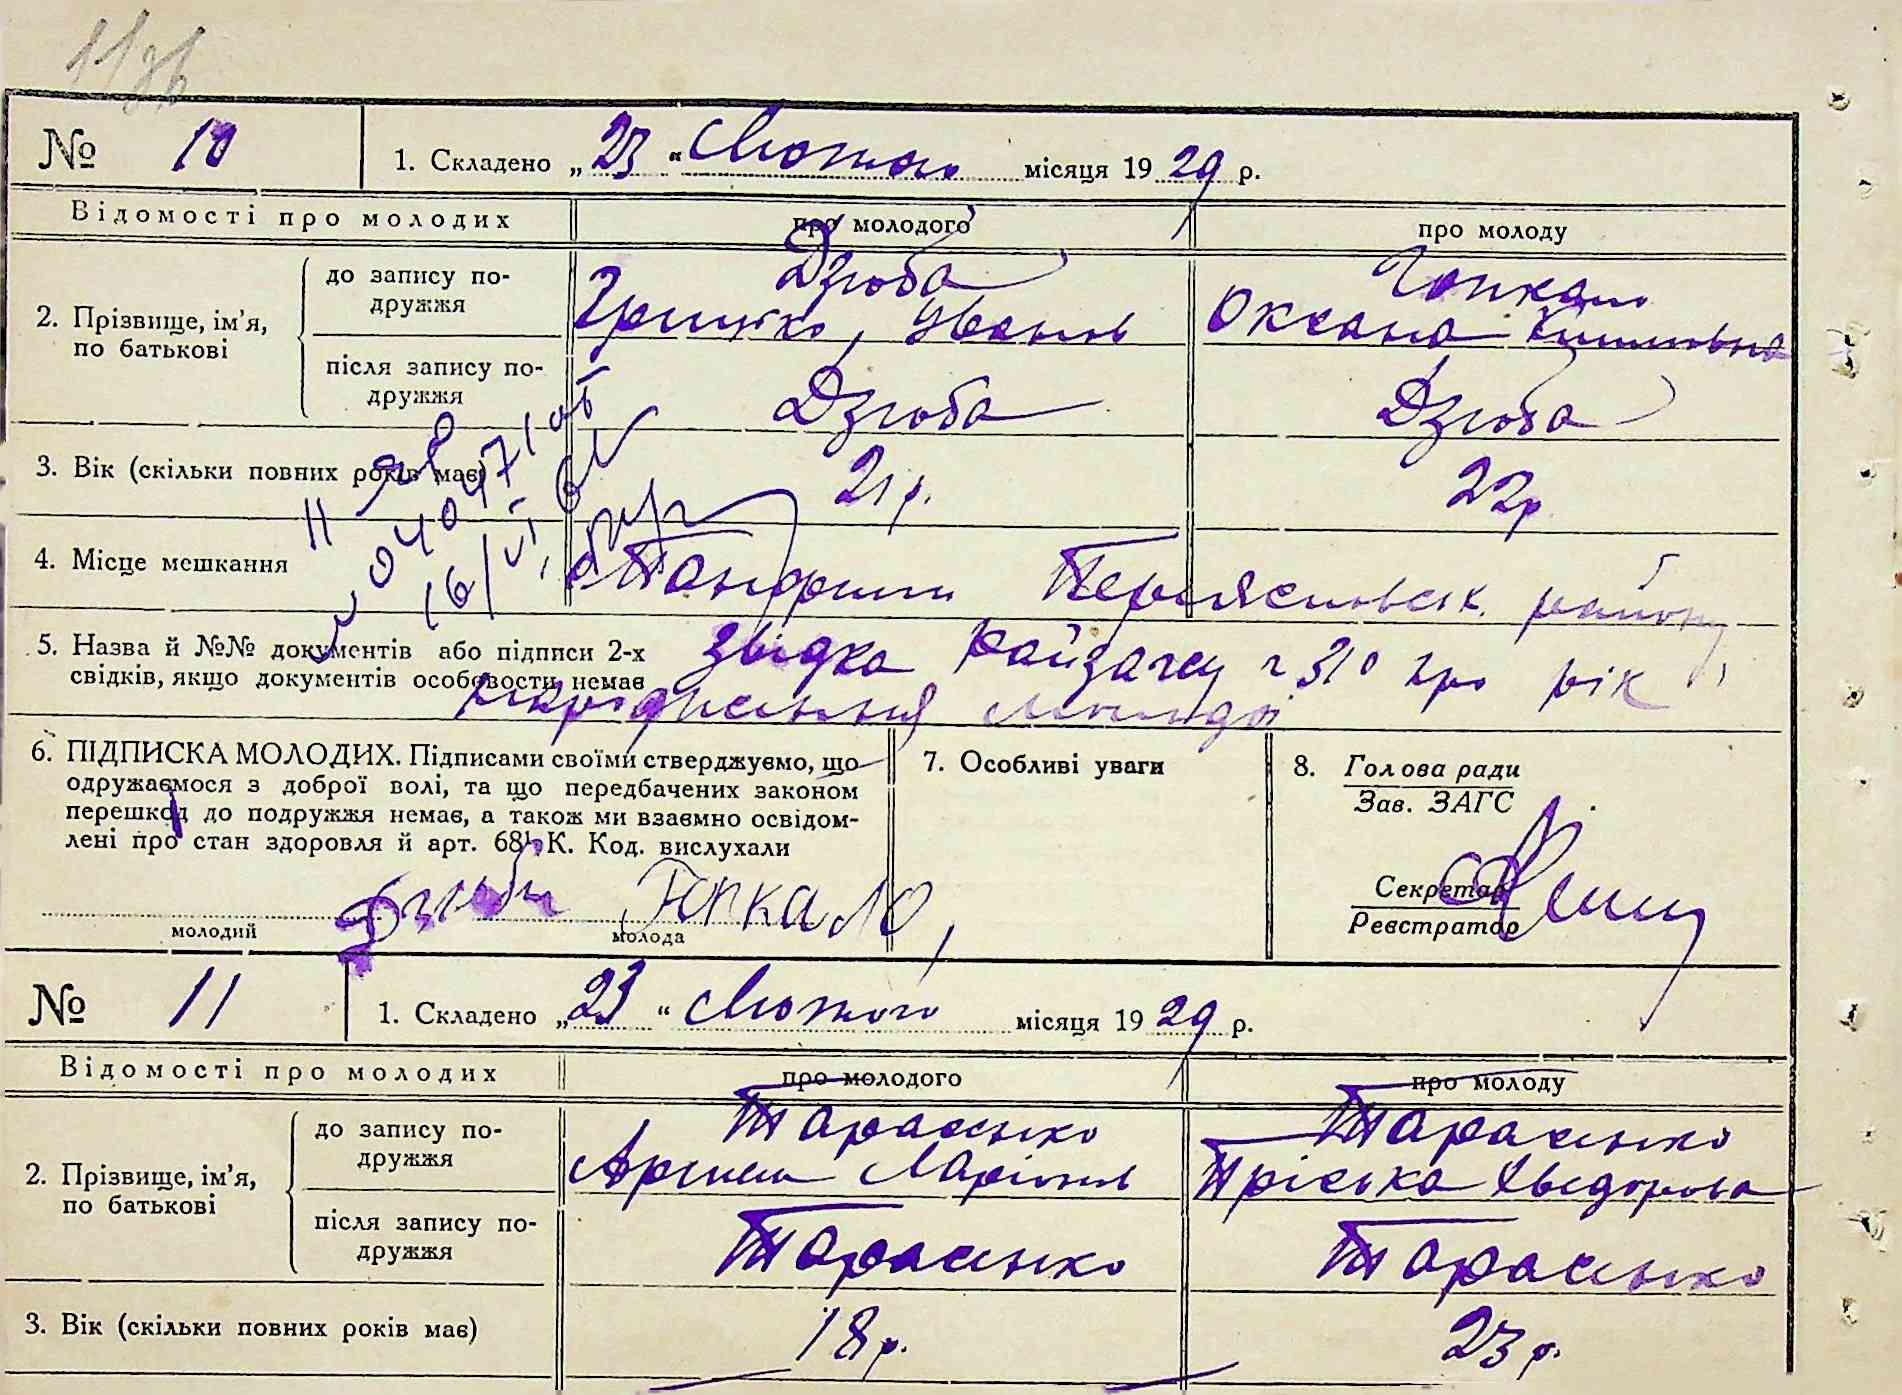 № 10 1. Складено „23“ Лютого місяця 1929 р.
Відомості про молодих про молодого про молоду
2. Прізвище, ім'я, по батькові
до запису подружжя Дзюба Грицько, Іванів Гопкало Оксана
після запису подружжя Дзюба Дзюба
3. Вік (скільки повних років має) 21 р. 22 р
4. Місце мешкання району
5. Назва й №№ документів або підписи 2-х Звідка Райзагсу 310 про рік
свідків, якщо документів особовости немає народження молодої
6. ПІДПИСКА МОЛОДИХ. Підписами своїми стверджуємо, що
одружаємося з доброї волі, та що передбачених законом
перешкод до подружжя немає, а також ми взаємно освідом-
лені про стан здоровля й арт. 68 К. Код. вислухали
Дзюба Гопкало
молодий молода
7. Особливі уваги
8. Голова ради
Зав. ЗАГС
Секретар
Реєстратор
№ 11 1. Складено „23“ Лютого місяця 1929 р.
Відомості про молодих про молодого про молоду
2. Прізвище, ім'я, по батькові
до запису подружжя Тарасенко Ларіонів Тарасенко Пріська Хведорова
після запису подружжя Тарасенко Тарасенко
3. Вік (скільки повних років має) 18 р. 23 р.